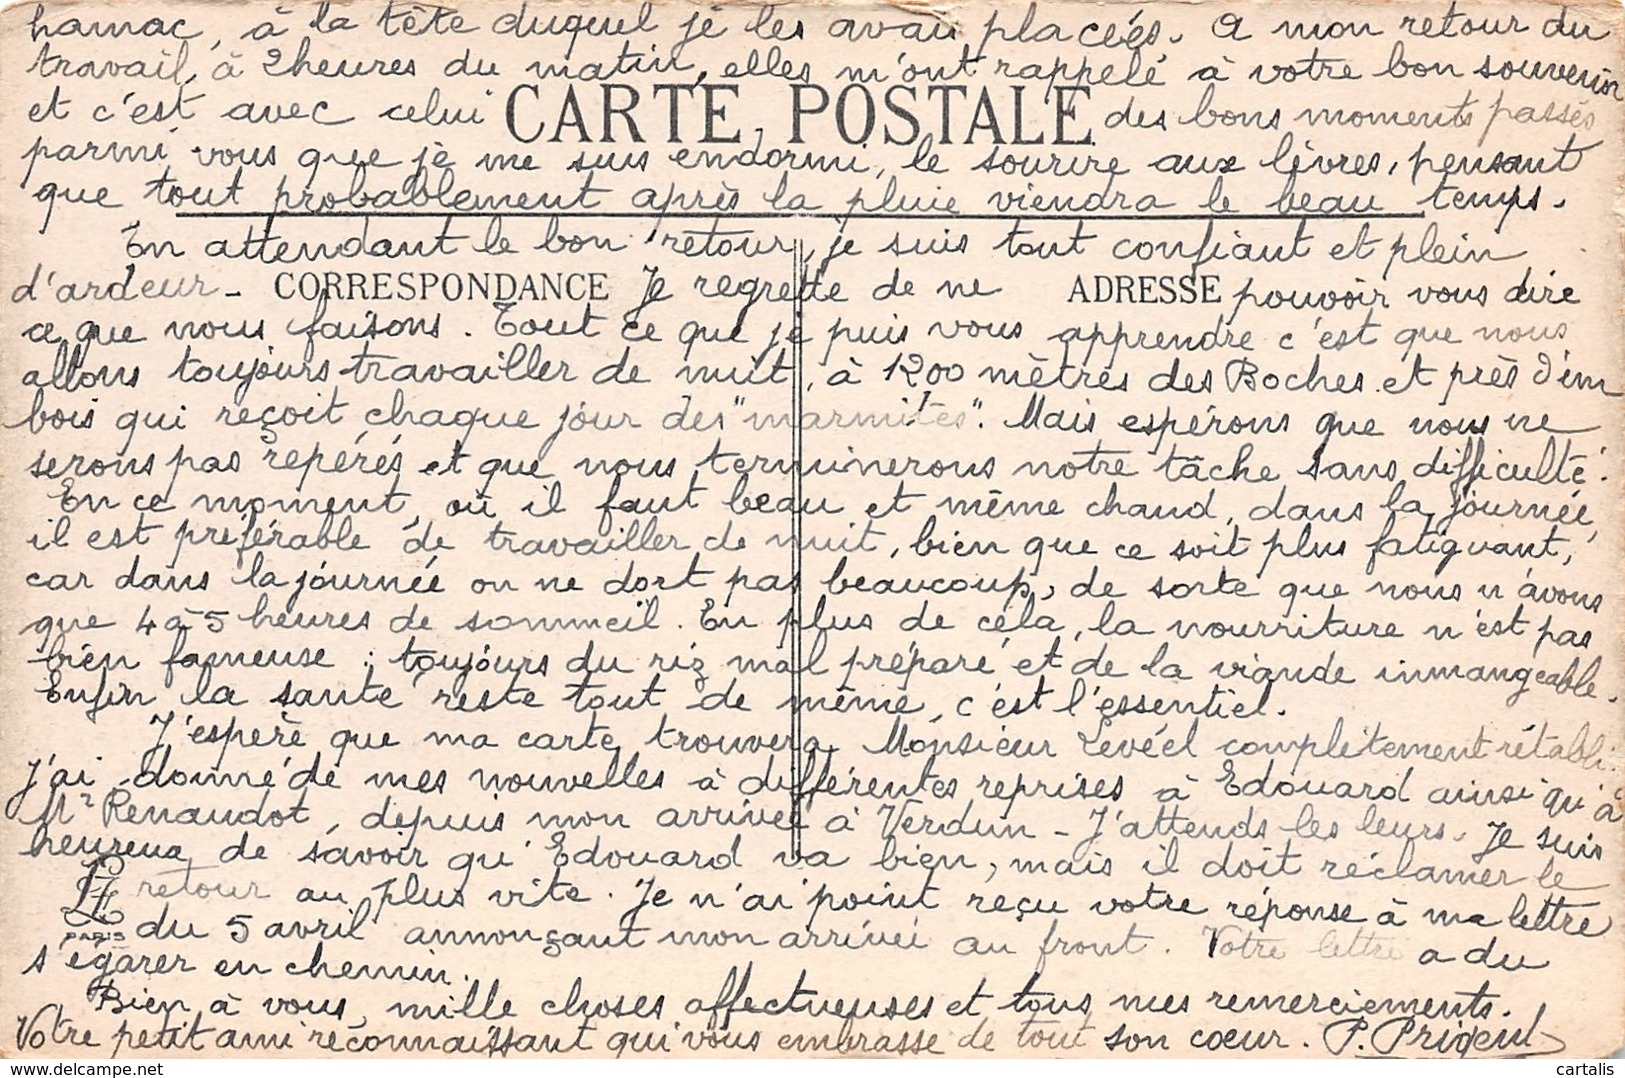 hamac, à la tête duquel je les avais placées. A mon retour du
travail, à 2 heures du matin, elles m'ont rappelé à votre bon souvenir
et c'est avec celui des bons moments passés
CARTE POSTALE
parmi vous que je me suis endormi, le sourire aux lèvres, pensant
que tout probablement après la pluie viendra le beau temps.
En attendant le bon retour, je suis tout confiant et plein
d'ardeur - Je regrette de ne pouvoir vous dire
CORRESPONDANCE ADRESSE
ce que nous faisons. Tout ce que je puis vous apprendre c'est que nous
allons toujours travailler de nuit, à 1200 mètres des Boches et près d'un
bois qui reçoit chaque jour des "marmites". Mais espérons que nous ne
serons pas repérés et que nous terminerons notre tâche sans difficulté.
En ce moment, où il faut beau et même chaud, dans la journée,
il est préférable de travailler de nuit, bien que ce soit plus fatiguant,
car dans la journée on ne dort pas beaucoup, de sorte que nous n'avons
que 4 à 5 heures de sommeil. En plus de céla, la nourriture n'est pas
bien fameuse : toujours du riz mal préparé et de la viande immangeable.
Enfin la santé reste tout de même, c'est l'essentiel.
J'espère que ma carte trouvera Monsieur Levéel complètement rétabli.
J'ai donné de mes nouvelles à différentes reprises à Edouard ainsi qu'à
Mr Renaudot, depuis mon arrivée à Verdun - J'attends les leurs. Je suis
heureux de savoir qu'Edouard va bien, mais il doit réclamer le
retour au plus vite. Je n'ai point reçu votre réponse à ma lettre
du 5 avril annonçant mon arrivée au front. Votre lettre a du
PARIS
s'égarer en chemin.
Bien à vous, mille choses affectueuses et tous mes remerciements.
Votre petit ami réconnaissant qui vous embrasse de tout son coeur. P. Prigent
cartalis
delcampe.net